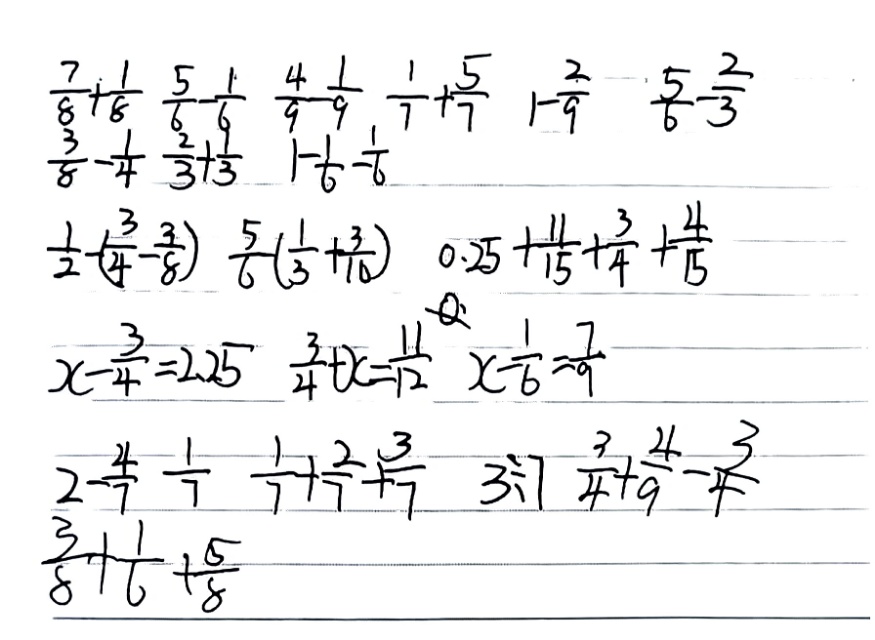 7/8+1/8 5/6-1/6 4/9-1/9 1/7+5/7 1-2/9 5/6-2/3
3/8-1/4 2/3+1/3 1-1/6-1/6
1/2-(3/4-3/8) 5/6-(1/3+3/10) 0.25+11/15+3/4+4/15
x-3/4=2.25 3/4+x=11/12 x-1/6=7/9
2-4/7 1/7 1/7+2/7+3/7 3÷7 3/4+4/9-3/4
3/8+1/6+5/8